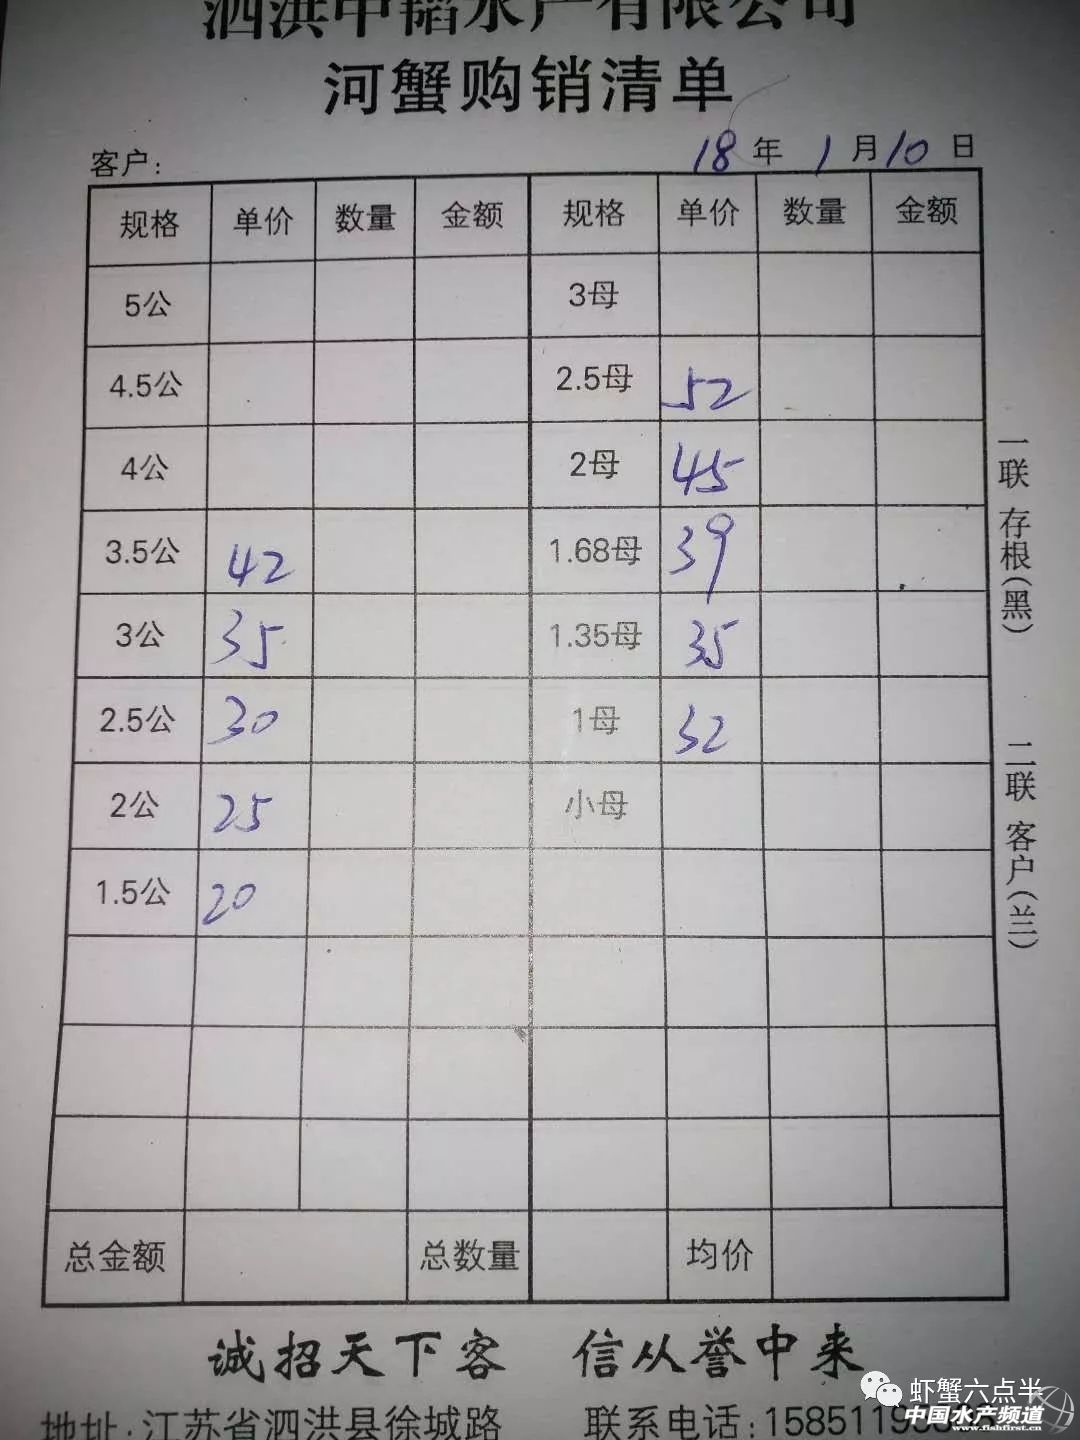 泗洪中韬水产有限公司
河蟹购销清单
客户: 18年 1月10日
规格 单价 数量 金额 规格 单价 数量 金额
5公 3母
4.5公 2.5母 52
4公 2母 45
3.5公 42 1.68母 39
3公 35 1.35母 35
2.5公 30 1母 32
2公 25 小母
1.5公 20
总金额 总数量 均价
一联 存根(黑) 二联 客户(兰)
诚招天下客 信从誉中来
虾蟹六点半
地址:江苏省泗洪县徐城路 联系电话:158511
中国水产频道
www.fishfirst.cn